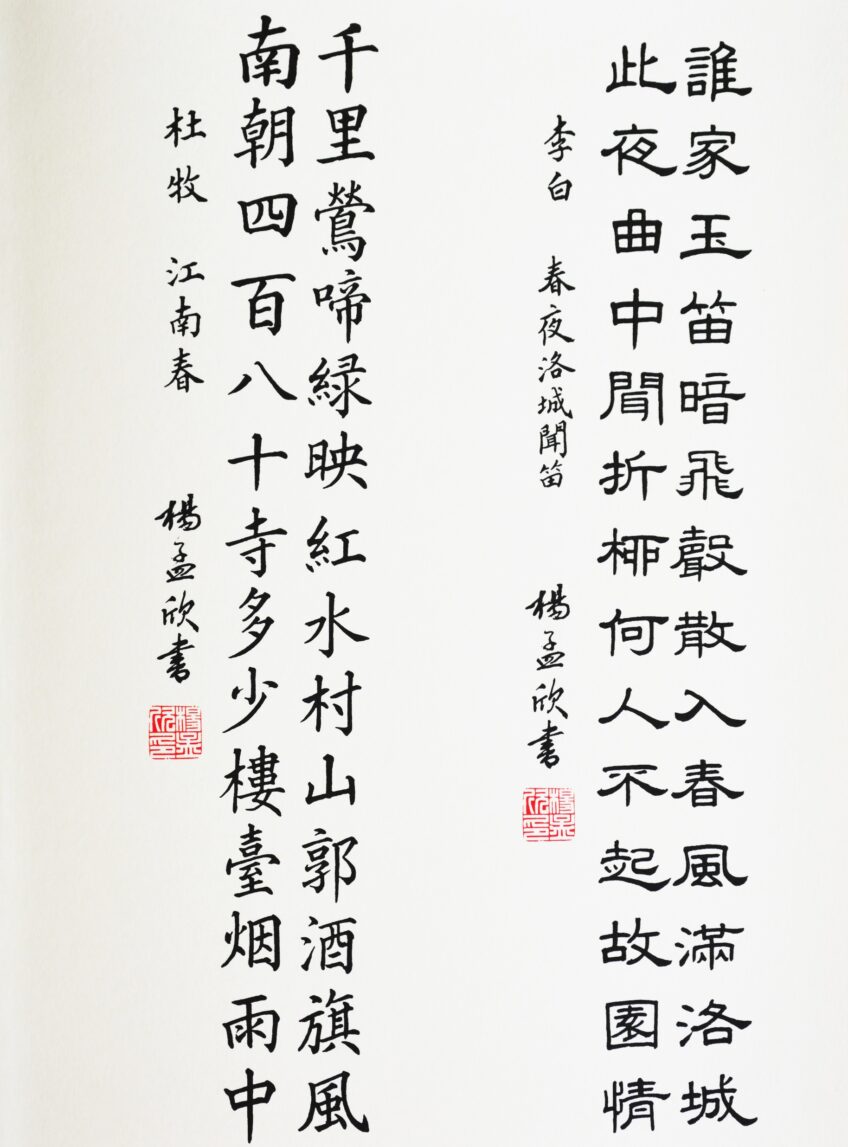 誰家玉笛暗飛聲散入春風滿洛城
此夜曲中聞折栁何人不起故園情
李白 春夜洛城聞笛
楊孟欣書
楊孟欣印
千里鶯啼緑映紅水村山郭酒旗風
南朝四百八十寺多少樓臺烟雨中
杜牧 江南春
楊孟欣書
楊孟欣印